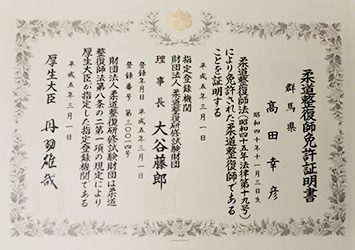 柔道整復師免許証明書
群馬県
髙田幸彦
昭和四十年十一月三日生
柔道整復師法(昭和四十五年法律第十九号)
により免許された柔道整復師である
ことを証明する
平成五年三月一日
指定登録機関
財団法人柔道整復研修試験財団
理事長 大谷藤郎
登録年月日 平成五年三月一日
登録番号 第三〇〇一四号
財団法人柔道整復研修試験財団は柔道
整復師法第八条の二第一項の規定により
厚生大臣が指定した指定登録機関である
平成五年三月一日
厚生大臣 丹羽雄哉